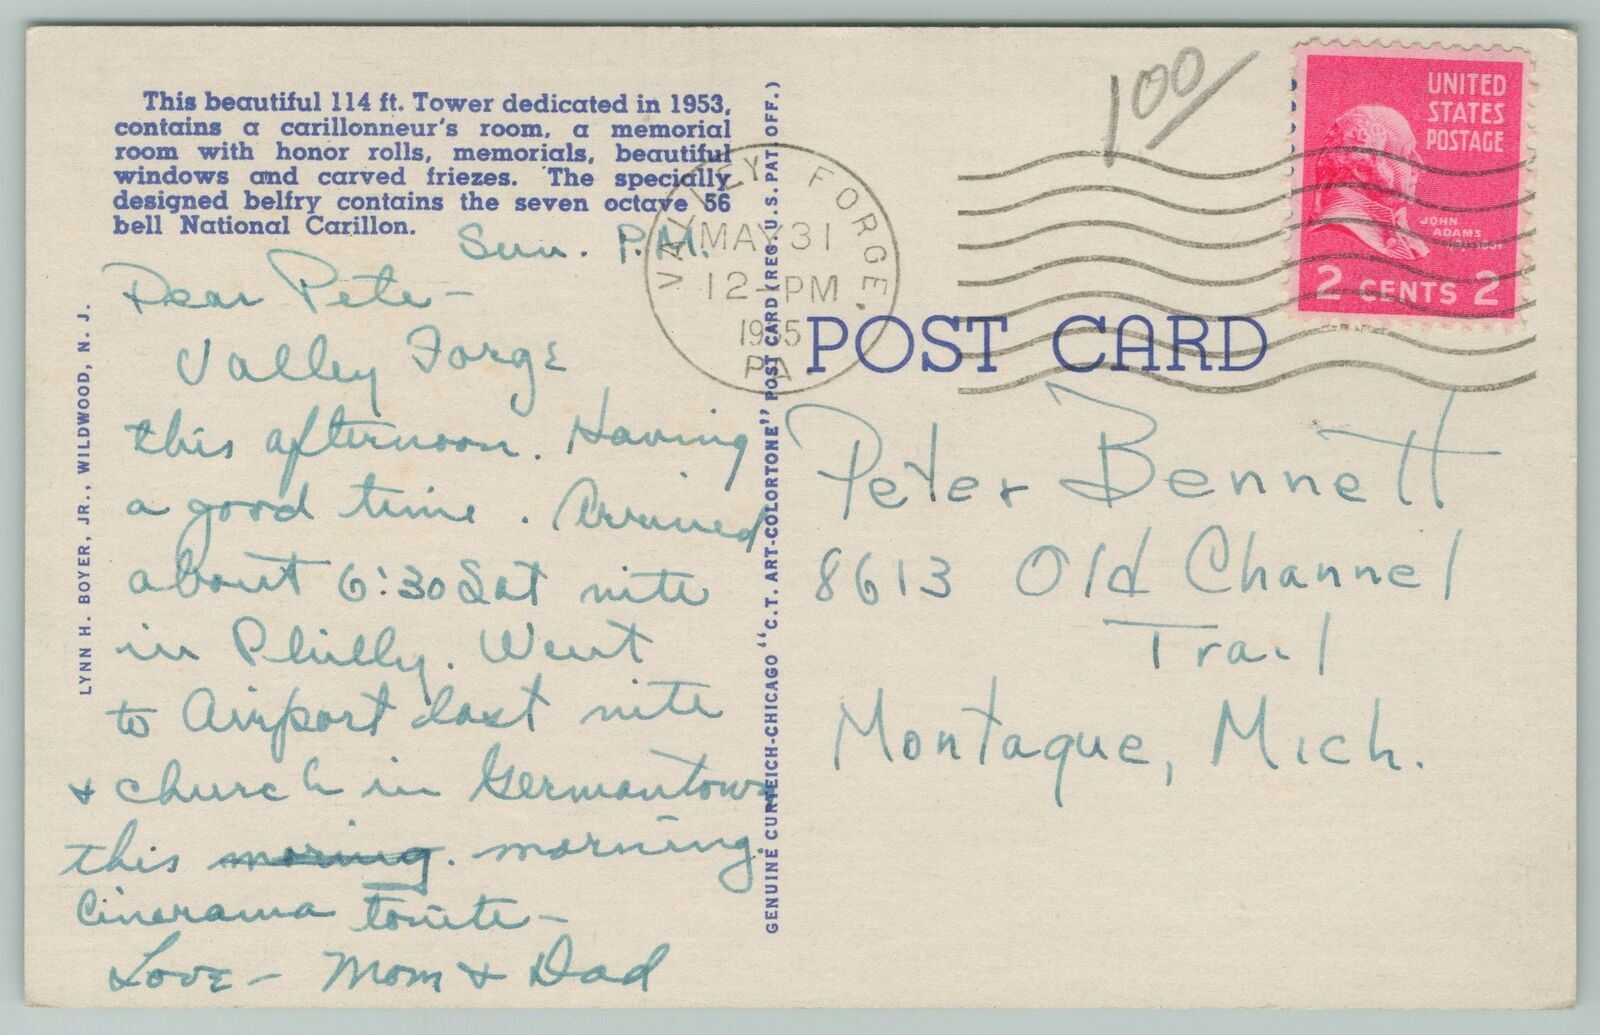 This beautiful 114 ft. Tower dedicated in 1953,
contains a carillonneur's room, a memorial
room with honor rolls, memorials, beautiful
windows and carved friezes. The specially
designed belfry contains the seven octave 56
bell National Carillon.
Sun. P.M.
Dear Pete-
Valley Forge
this afternoon. Having
a good time. Arrived
about 6:30 Sat nite
in Philly. Went
to Airport last nite
& church in Germantown
this moring. morning.
Cinerama tonite-
Love- Mom & Dad
LYNN H. BOYER, JR., WILDWOOD, N. J.
GENUINE CURTEICH-CHICAGO "C.T. ART-COLORTONE" POST CARD (REG. U.S. PAT. OFF.)
VALLEY FORGE,
MAY 31
12-PM
1955
PA
1 00
UNITED
STATES
POSTAGE
JOHN
ADAMS
2 CENTS 2
POST CARD
Peter Bennett
8613 Old Channel
Trail
Montague, Mich.